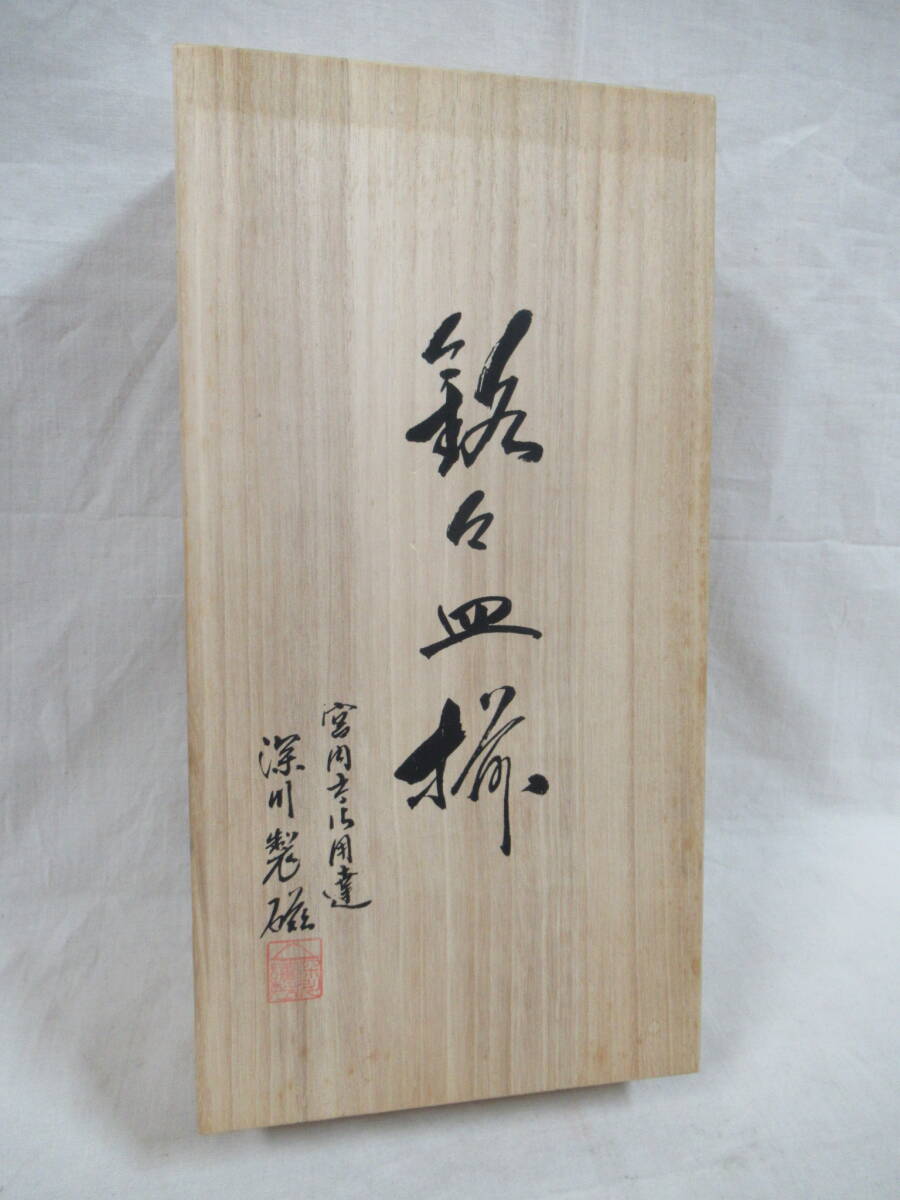 銘々皿揃
宮内庁御用達
深川製磁